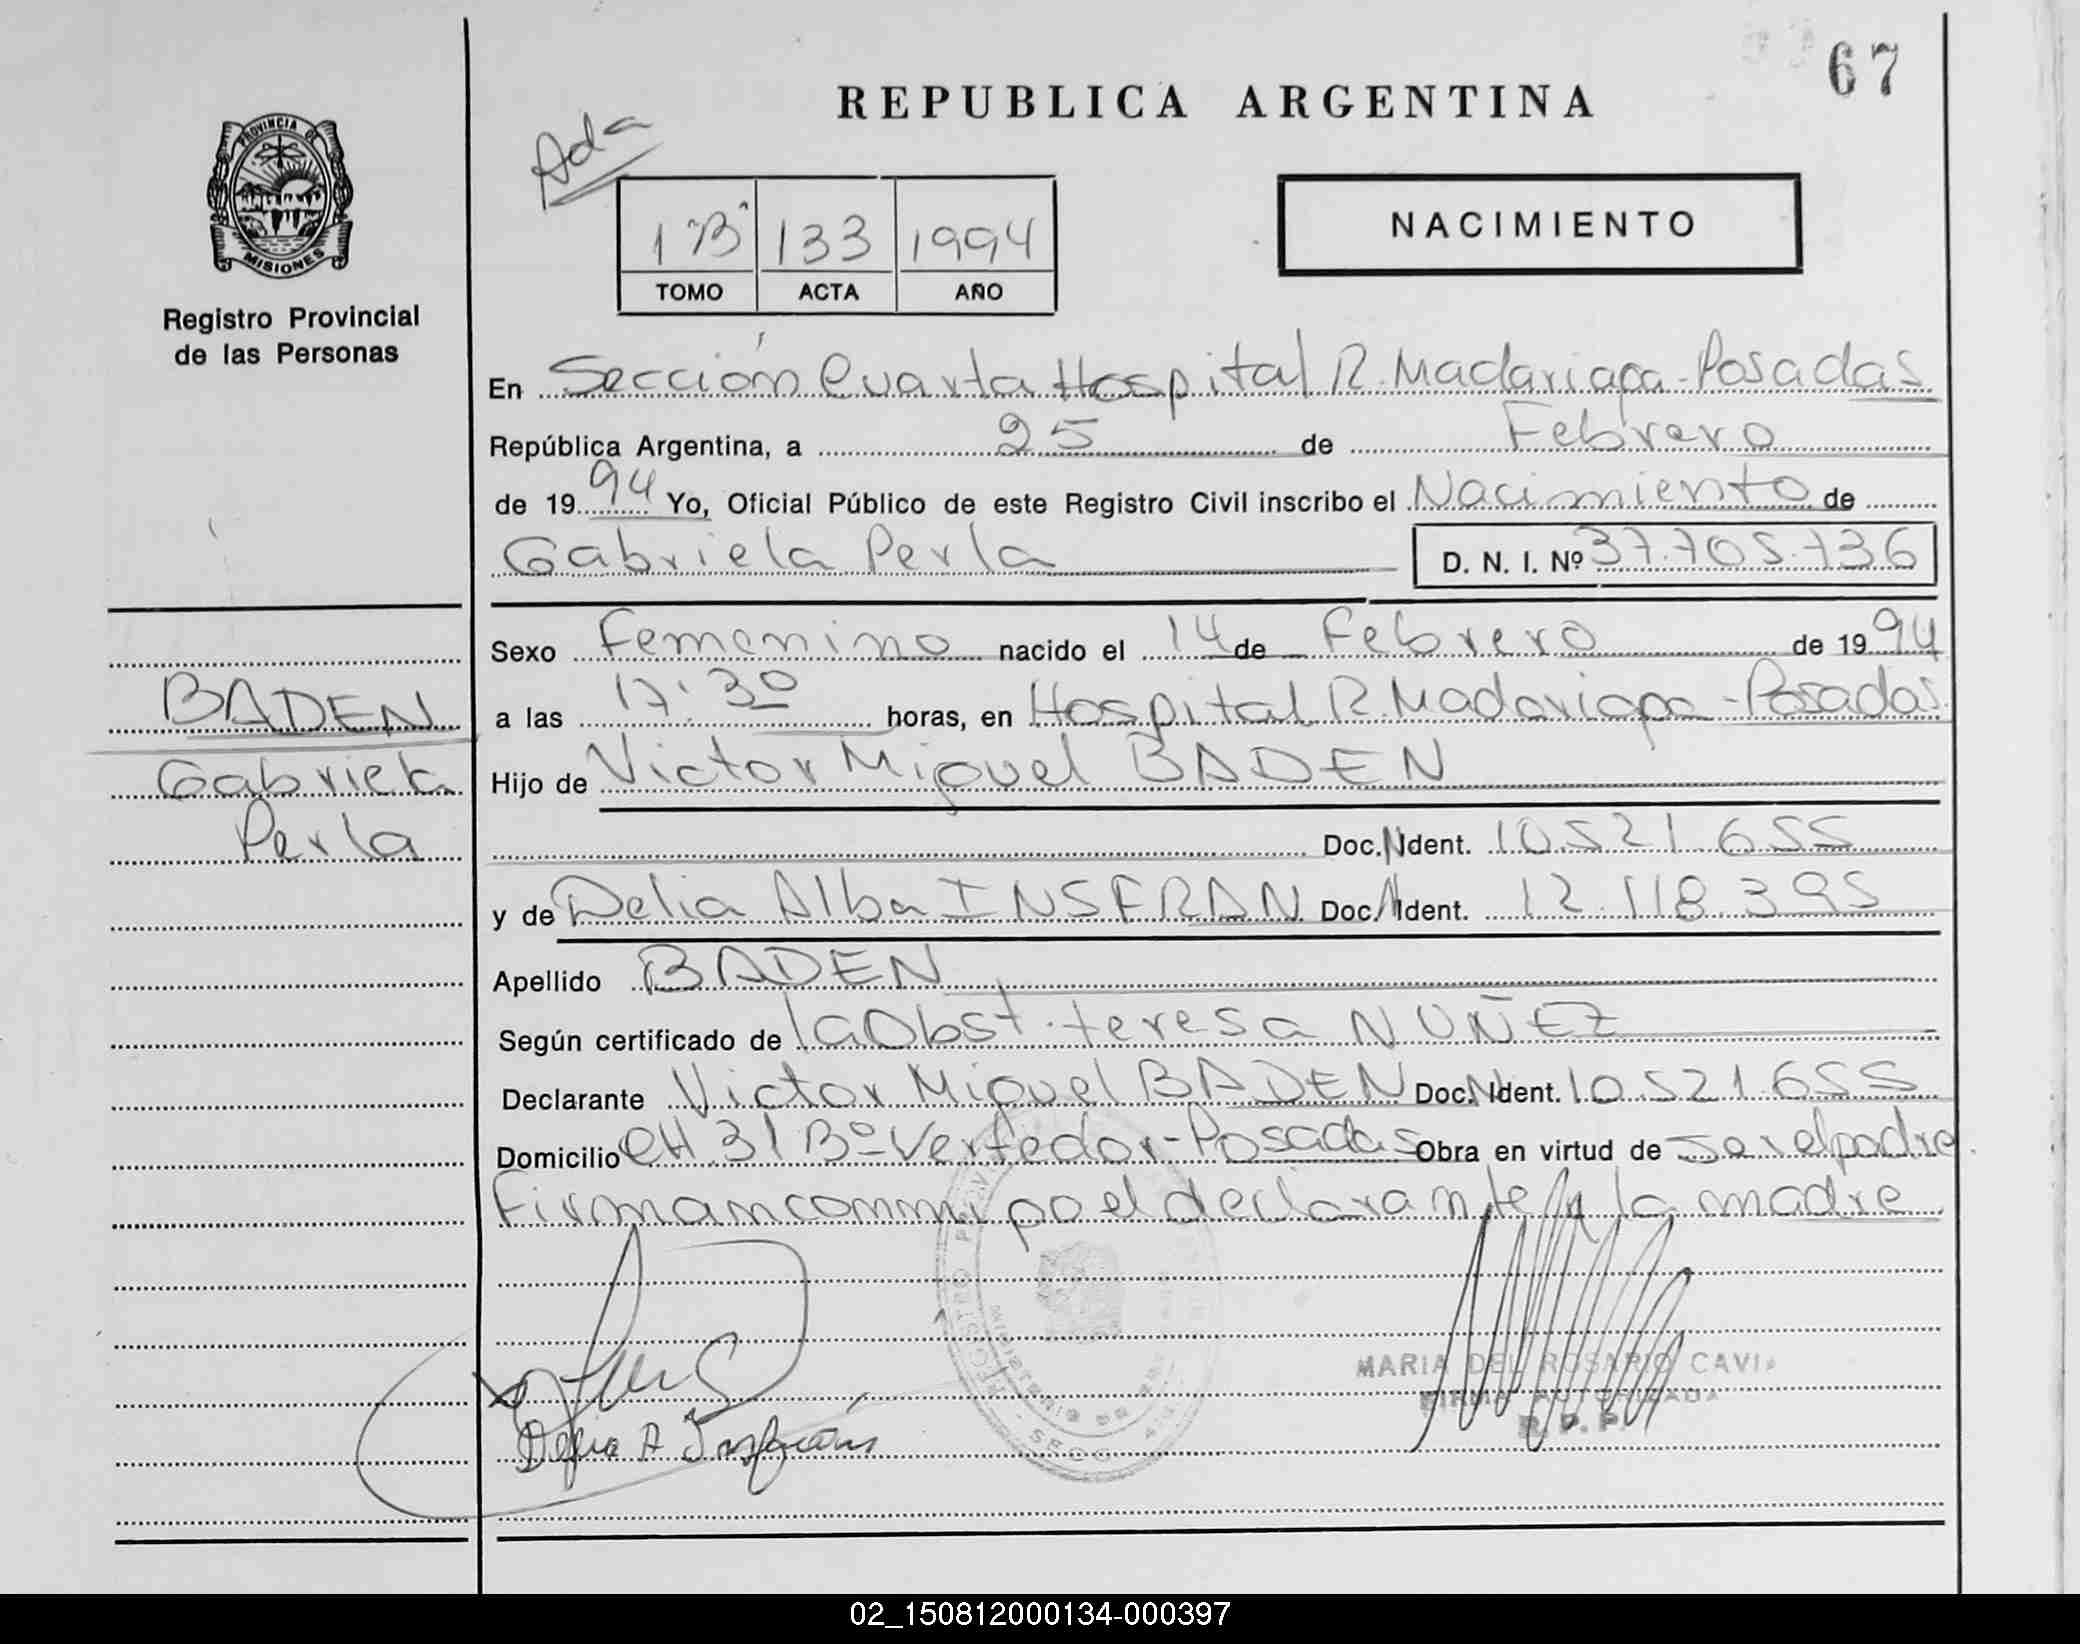 67
REPUBLICA ARGENTINA
Ada
PROVINCIA DE
MISIONES
Registro Provincial
de las Personas
1 "B" 133 1994
TOMO ACTA AÑO
NACIMIENTO
En Sección Cuarta Hospital R. Madariaga - Posadas
República Argentina, a 25 de Febrero
de 1994 Yo, Oficial Público de este Registro Civil inscribo el Nacimiento de
Gabriela Perla D. N. I. Nº 37.705.736
Sexo Femenino nacido el 14 de Febrero de 1994
a las 17:30 horas, en Hospital R. Madariaga - Posadas
BADEN
Gabriela
Perla
Hijo de Victor Miguel BADEN
Doc. N Ident. 10.521.655
y de Delia Alba INSFRAN Doc. N Ident. 12.118.395
Apellido BADEN
Según certificado de la Obst. teresa NUÑEZ
Declarante Victor Miguel BADEN Doc. N Ident. 10.521.655
Domicilio CH 31 Bº Posadas Obra en virtud de ser el padre
Firman conmigo el declarante y la madre
MARIA DEL ROSARIO CAVIA
FIRMA AUTORIZADA
R. P. P.
Delia A Insfrán
02_150812000134-000397